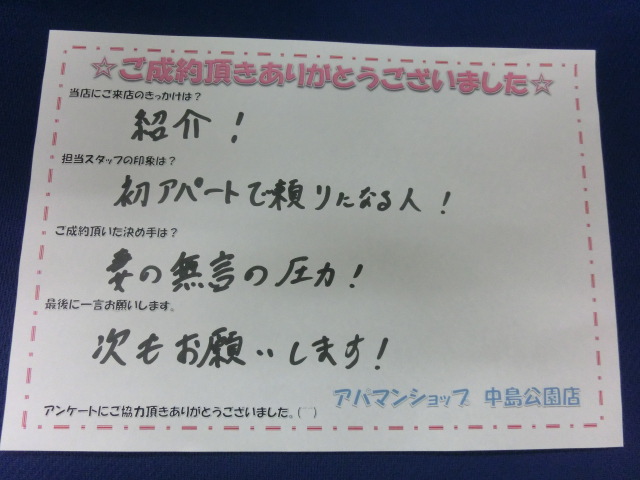 ☆ご成約頂きありがとうございました☆
当店にご来店のきっかけは？
紹介！
担当スタッフの印象は？
初アパートで頼りになる人！
ご成約頂いた決め手は？
妻の無言の圧力！
最後に一言お願いします。
次もお願いします！
アパマンショップ 中島公園店
アンケートにご協力頂きありがとうございました。(￣)